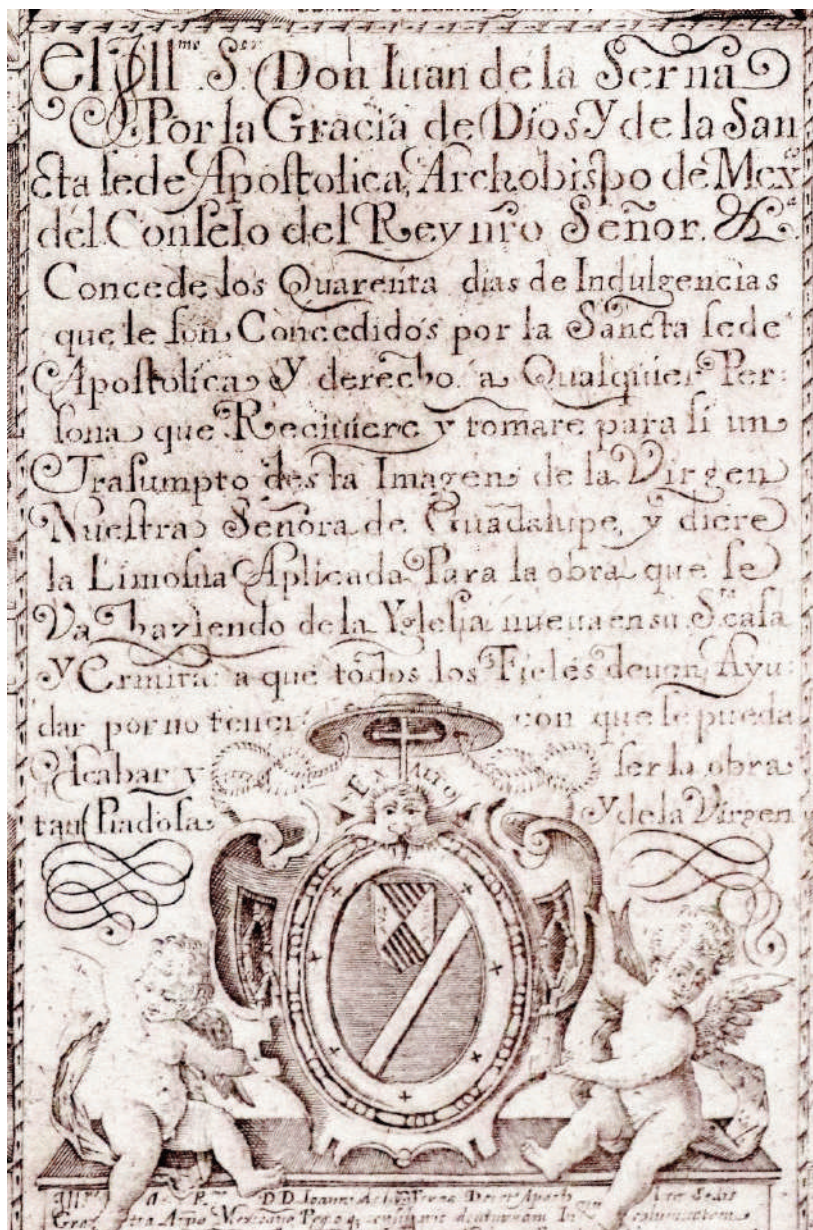 El Ill.mo S.or Don Iuan de la Serna
Por la Gracia de Dios y de la San
cta sede Apostolica, Archobispo de Mexco
del Conseio del Rey nro Señor. &c.a
Concede los Quarenta dias de Indulgencias
que le son Concedidos por la Sancta sede
Apostolica y derecho a Qualquier Per:
sona que Reciuiere y tomare para si un
Trasumpto desta Imagen de la Virgen
Nuestra Señora de Guadalupe, y diere
la Limosna Aplicada Para la obra que se
Va haziendo de la Yglesia nueua en su S.ta casa
y Ermita: a que todos los Fieles deuen Ayu:
dar por no tener con que se pueda
Acabar y ser la obra
tan Piadosa y de la Virgen
EX ALTO
D. D. Ioann
Mexicano